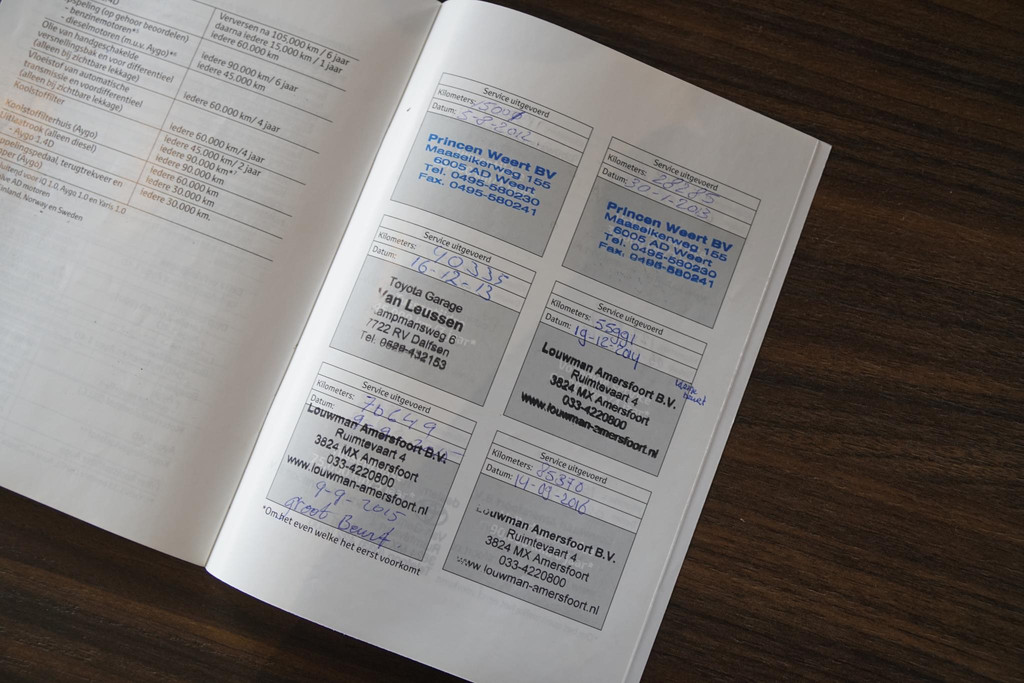 Verversen na 105.000 km / 6 jaar
daarna iedere 15,000 km / 1 jaar
speling (op gehoor beoordelen)
- benzinemotoren*³
iedere 60.000 km
- dieselmotoren (m.u.v. Aygo)*³
Olie van handgeschakelde
versnellingsbak en voor differentieel
(alleen bij zichtbare lekkage)
iedere 90.000 km/ 6 jaar
iedere 45.000 km
Vloeistof van automatische
transmissie en voordifferentieel
(alleen bij zichtbare lekkage)
iedere 60.000 km/4 jaar
Koolstoffilter
iedere 60.000 km/4 jaar
Koolstoffilterhuis (Aygo)
iedere 45.000 km/ 2 jaar
Uitlaatrook (alleen diesel)
iedere 90.000 km*⁷
- Aygo 1.4D
iedere 90.000 km
iedere 60.000 km
iedere 30.000 km
iedere 30.000 km.
Service uitgevoerd
Kilometers: 15001
Datum: 5-8-2012
Princen Weert BV
Maaseikerweg 155
6005 AD Weert
Tel. 0495-580230
Fax. 0495-580241
Service uitgevoerd
Kilometers: 28285
Datum: 30-1-2013
Princen Weert BV
Maaseikerweg 155
6005 AD Weert
Tel. 0495-580230
Fax. 0495-580241
Service uitgevoerd
Kilometers: 40335
Datum: 16-12-13
Toyota Garage
Van Leussen
Kampmansweg 6
7722 RV Dalfsen
Tel. 0529-432153
Service uitgevoerd
Kilometers: 55991
Datum: 19-12-2014
Louwman Amersfoort B.V.
Ruimtevaart 4
3824 MX Amersfoort
033-4220800
www.louwman-amersfoort.nl
beurt
Service uitgevoerd
Kilometers: 70649
Datum:
Louwman Amersfoort B.V.
Ruimtevaart 4
3824 MX Amersfoort
033-4220800
www.louwman-amersfoort.nl
9-9-2015
groot Beurt
Service uitgevoerd
Kilometers: 85370
Datum: 14-09-2016
Louwman Amersfoort B.V.
Ruimtevaart 4
3824 MX Amersfoort
033-4220800
www.louwman-amersfoort.nl
*Om het even welke het eerst voorkomt